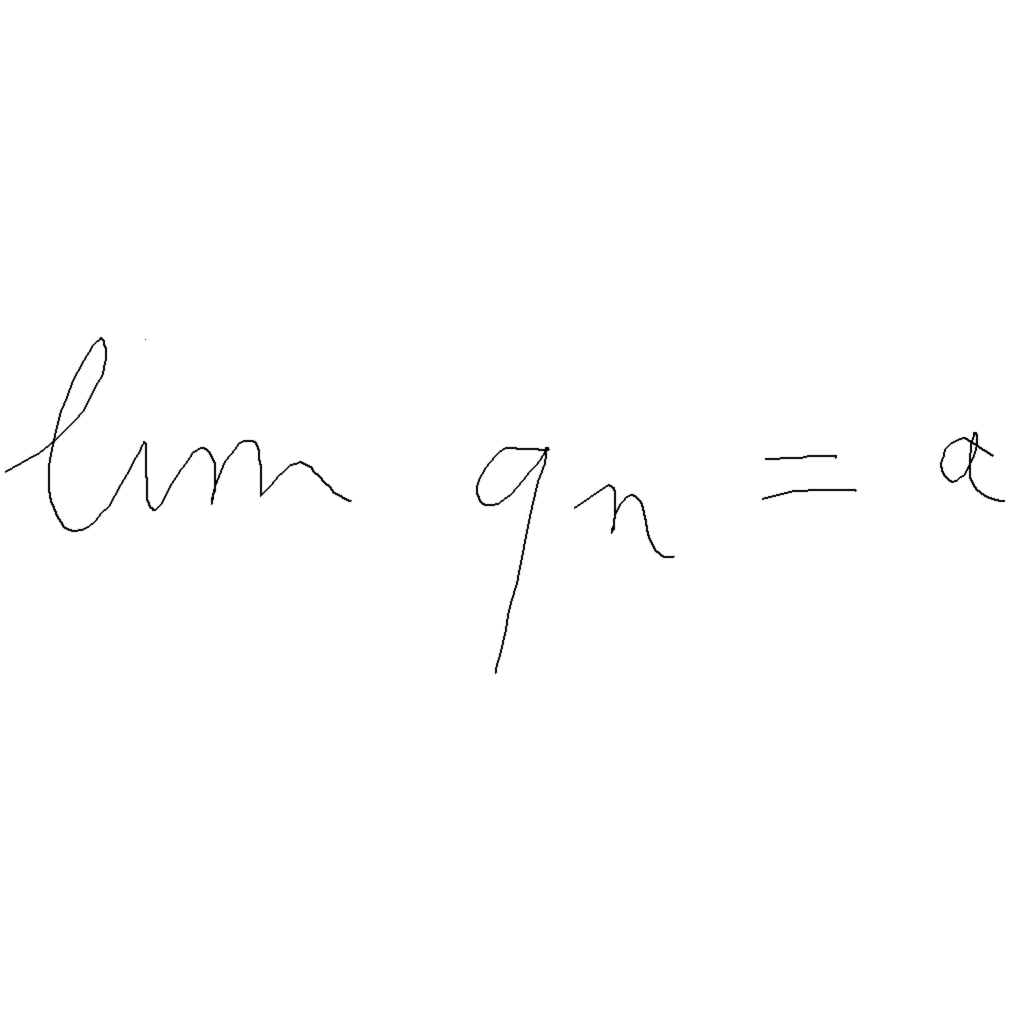 lim qₙ = a